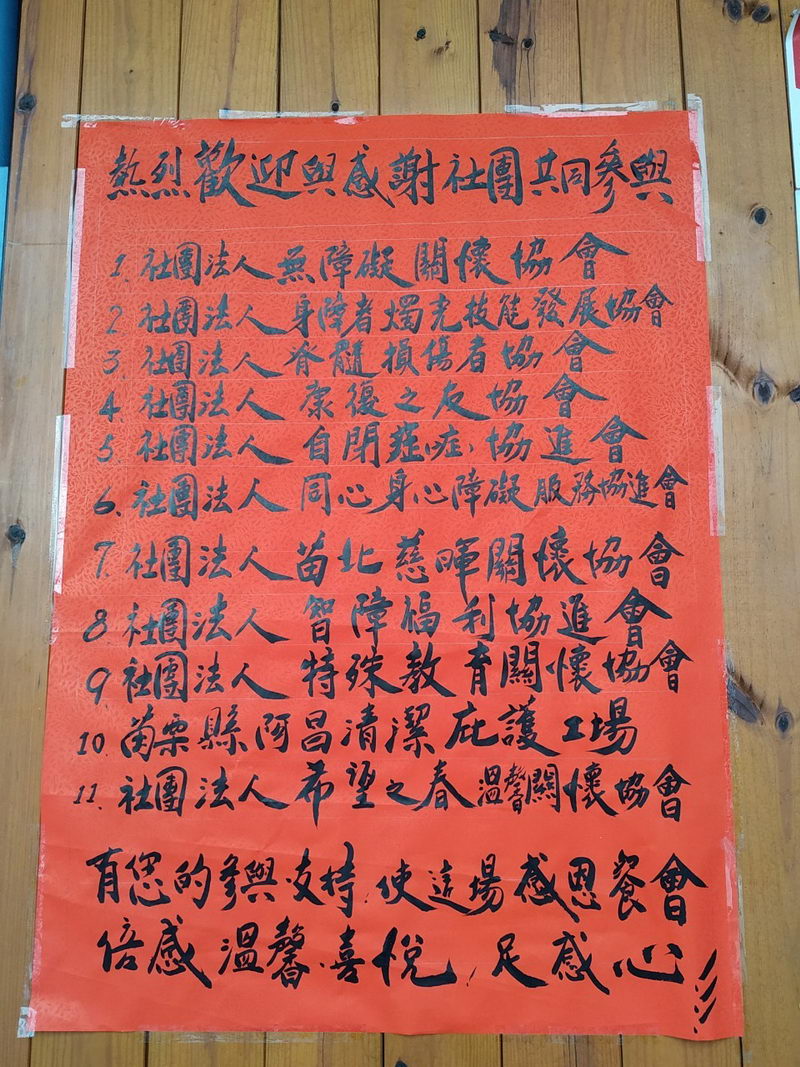 熱烈歡迎與感謝社團共同參與
1. 社團法人無障礙關懷協會
2. 社團法人身障者燭光技能發展協會
3. 社團法人脊髓損傷者協會
4. 社團法人康復之友協會
5. 社團法人自閉症協進會
6. 社團法人同心身心障礙服務協進會
7. 社團法人苗北慈暉關懷協會
8. 社團法人智障福利協進會
9. 社團法人特殊教育關懷協會
10. 苗栗縣阿昌清潔庇護工場
11. 社團法人希望之春溫馨關懷協會
有您的參與支持,使這場感恩餐會
倍感溫馨、喜悅,足感心